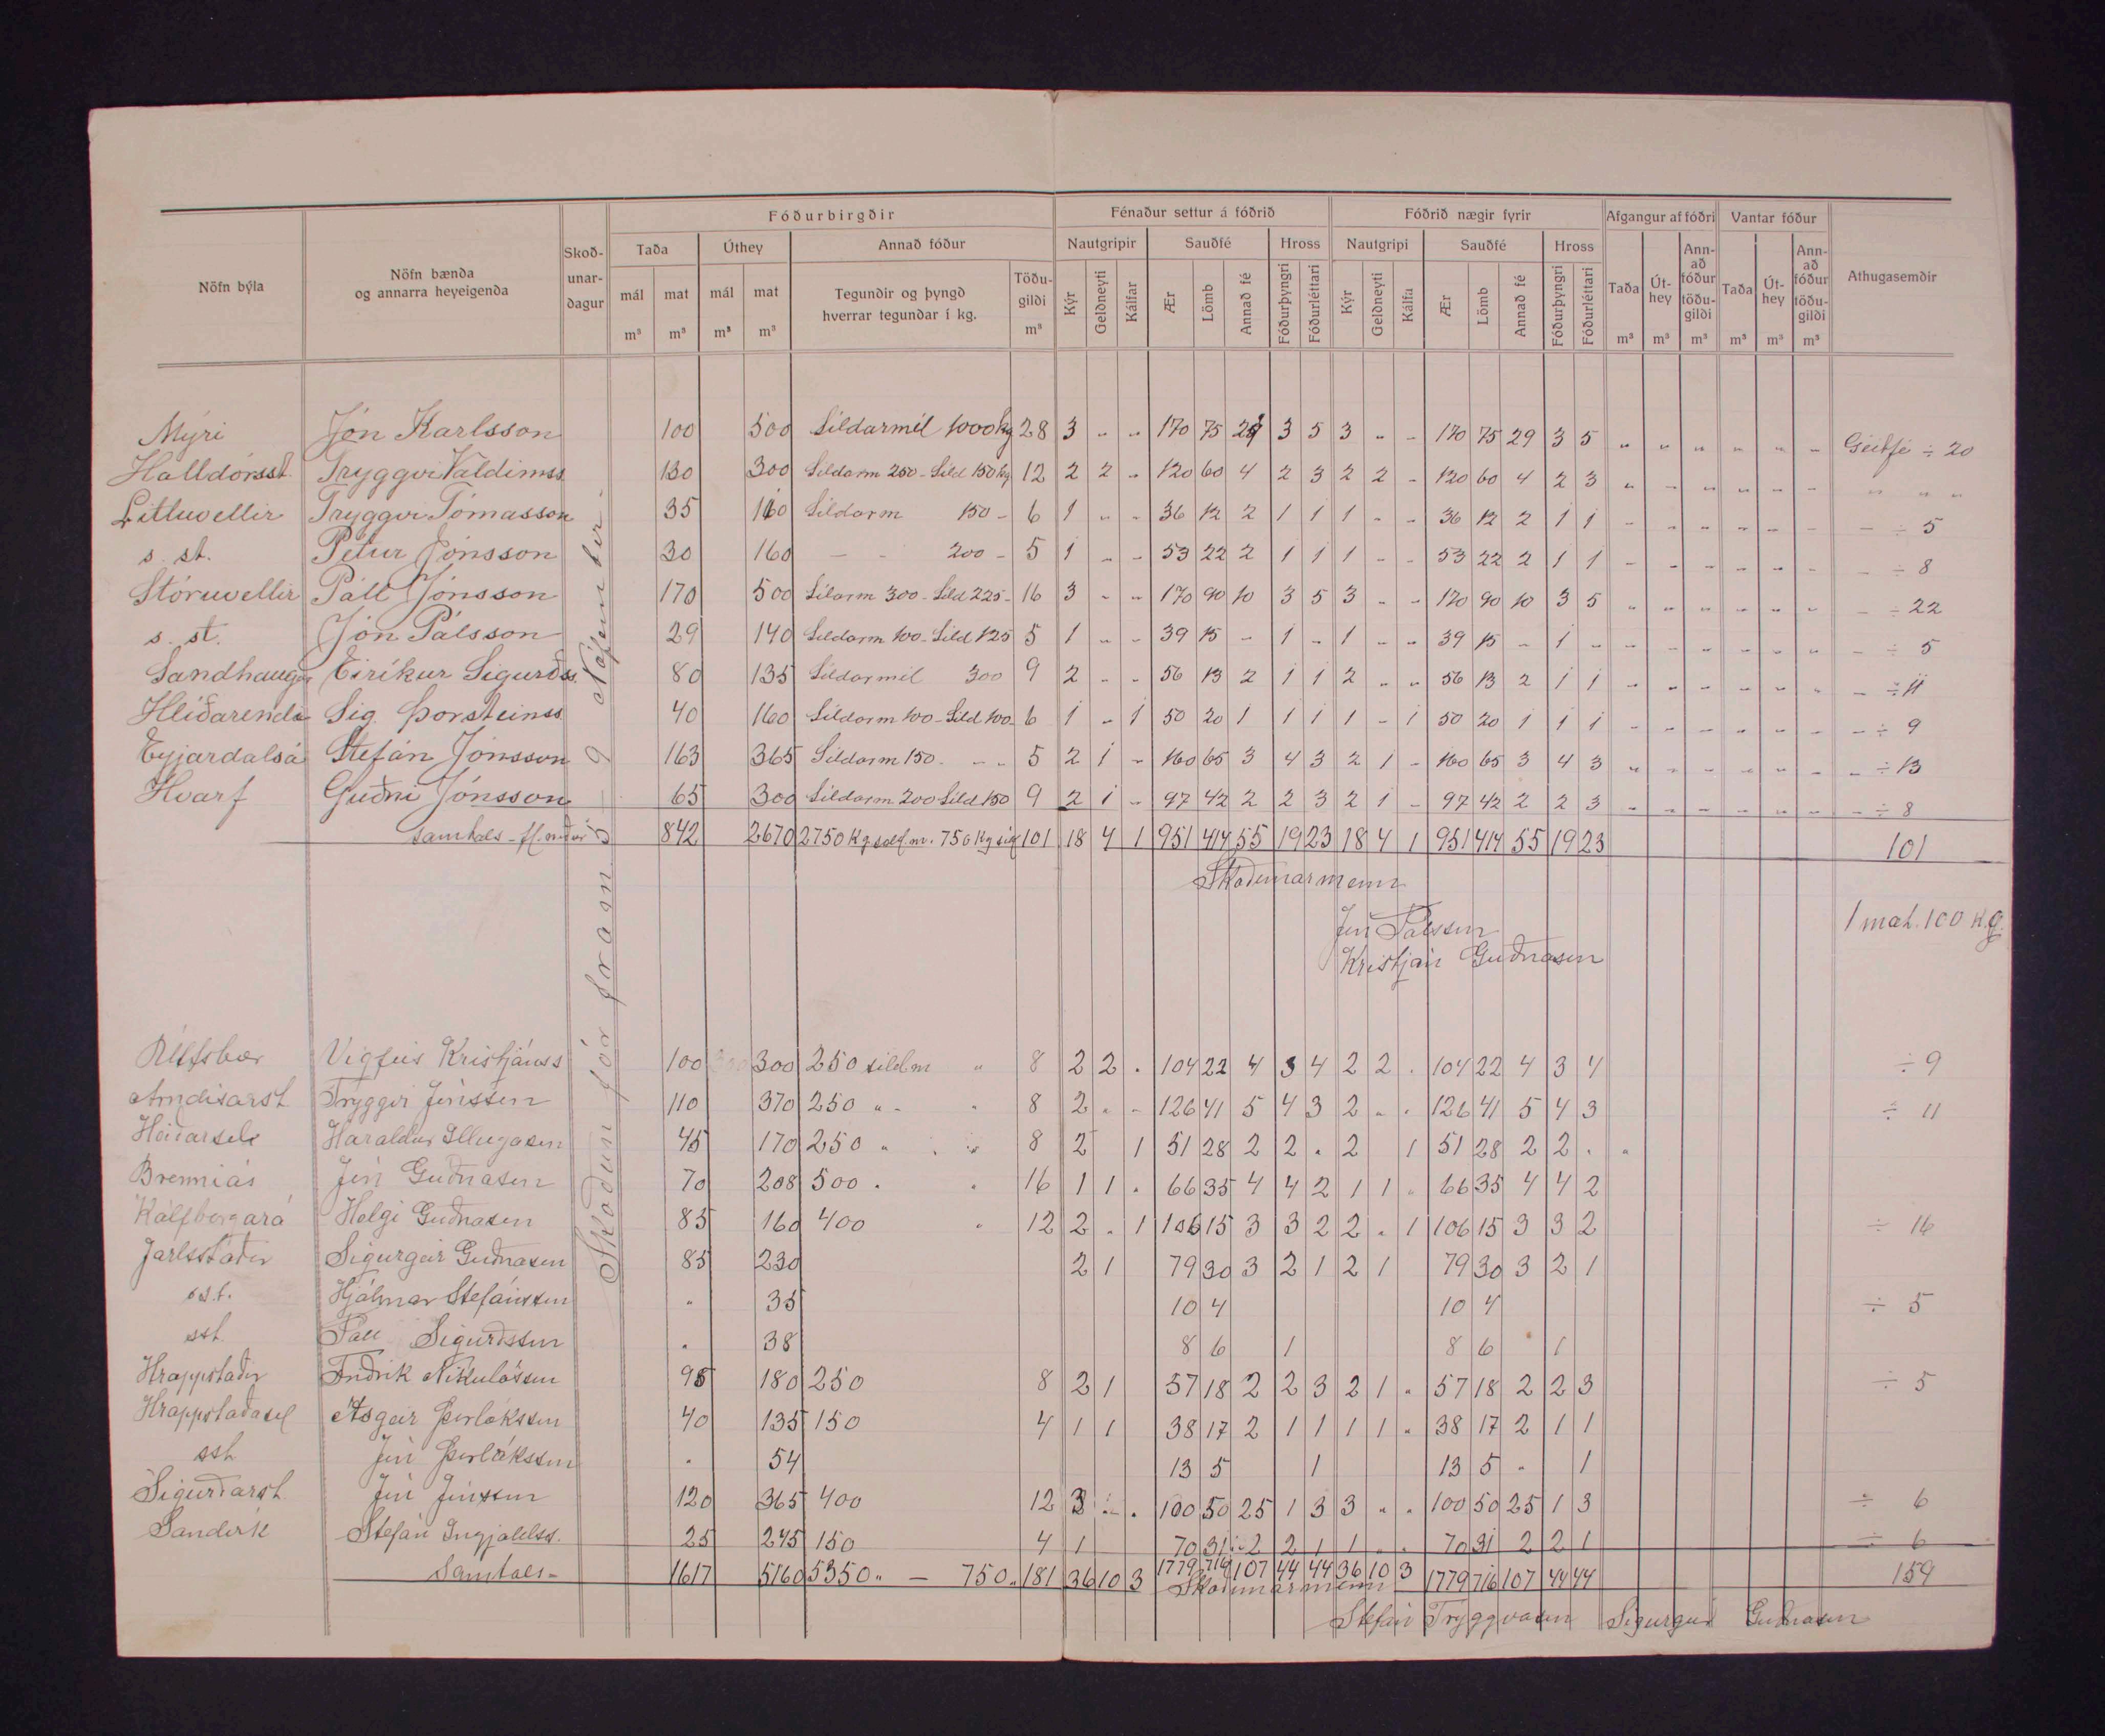 Fóðurbirgðir Fénaður settur á fóðrið Fóðrið nægir fyrir Afgangur af fóðri Vantar fóður
Nöfn býla Nöfn bænda og annarra heyeigenda Skoð-unar-dagur Taða Úthey Annað fóður Nautgripir Sauðfé Hross Nautgripi Sauðfé Hross Taða Út-hey Ann-að fóður töðu-gildi Taða Út-hey Ann-að fóður töðu-gildi Athugasemdir
mál mat mál mat Tegundir og þyngd hverrar tegundar í kg. Töðu-gildi Kýr Geldneyti Kálfar Ær Lömb Annað fé Fóðurþyngri Fóðurléttari Kýr Geldneyti Kálfa Ær Lömb Annað fé Fóðurþyngri Fóðurléttari
m³ m³ m³ m³ m³ m³ m³ m³ m³ m³ m³
Mýri Jón Karlsson 100 500 Síldarmél 1000 kg 28 3 " " 170 75 29 3 5 3 " " 170 75 29 3 5 " " " " " " Geitfé ÷ 20
Halldórsst. Tryggvi Valdimss. 130 300 Síldarm 250 - Síld 150 kg 12 2 2 - 120 60 4 2 3 2 2 - 120 60 4 2 3 " " " " " " " " "
Litluvellir Tryggvi Tómasson 35 160 Síldarm 150 - 6 1 " " 36 12 2 1 1 1 " " 36 12 2 1 1 - - - - - - - ÷ 5
s. st. Pétur Jónsson 30 160 - - 200 - 5 1 - - 53 22 2 1 1 1 - - 53 22 2 1 1 - - - - - - - ÷ 8
Stóruvellir Páll Jónsson 170 500 Sílarm 300 - Síld 225 - 16 3 - - 170 90 10 3 5 3 - - 170 90 10 3 5 " " " " " " - ÷ 22
s. st. Jón Pálsson 29 140 Síldarm 100 - Síld 125 5 1 - - 39 15 - 1 - 1 - - 39 15 - 1 - - - - - - - - ÷ 5
Sandhaugar Eiríkur Sigurðss. 80 135 Síldarmél 300 9 2 - - 56 13 2 1 1 2 - - 56 13 2 1 1 - - - - - - - ÷ 11
Hlíðarendi Sig. Þorsteinss. 40 160 Síldarm 100 - Síld 100 - 6 1 - 1 50 20 1 1 1 1 - 1 50 20 1 1 1 - - - - - - - ÷ 9
Eyjardalsá Stefán Jónsson 163 365 Síldarm 150 - - - 5 2 1 - 160 65 3 4 3 2 1 - 160 65 3 4 3 - - - - - - - ÷ 13
Hvarf Guðni Jónsson 65 300 Síldarm 200 Síld 150 9 2 1 - 97 42 2 2 3 2 1 - 97 42 2 2 3 - - - - - - - ÷ 8
Samtals - 842 2670 2750 kg 750 kg 101 18 4 1 951 414 55 19 23 18 4 1 951 414 55 19 23 101
Skoðunarmenn
Jón Pálsson
Kristján Guðnason
1 mat. 100 kg.
Skoðun fór fram 3 - 9 Nóvember -
Úlfsbær Vigfús Kristjánss 100 300 250 síldm " 8 2 2 . 104 22 4 3 4 2 2 . 104 22 4 3 4 ÷ 9
Arndísarst Tryggvi Jónsson 110 370 250 " - " 8 2 " - 126 41 5 4 3 2 " " 126 41 5 4 3 ÷ 11
Heiðarsel Haraldur Illugason 45 170 250 " . " 8 2 1 51 28 2 2 . 2 1 51 28 2 2 . "
Brenniás Jón Guðnason 70 208 500 . " 16 1 1 . 66 35 4 4 2 1 1 " 66 35 4 4 2
Kálfborgará Helgi Guðnason 85 160 400 " 12 2 . 1 106 15 3 3 2 2 . 1 106 15 3 3 2 ÷ 16
Jarlsstaðir Sigurgeir Guðnason 85 230 2 1 79 30 3 2 1 2 1 79 30 3 2 1
s.st. Hjálmar Stefánsson " 35 10 4 10 4 ÷ 5
sst. Páll Sigurðsson " 38 8 6 1 8 6 1
Hrappstaðir Friðrik Nikulásson 95 180 250 8 2 1 57 18 2 2 3 2 1 " 57 18 2 2 3 ÷ 5
Hrappstaðasel Ásgeir Þorláksson 40 135 150 4 1 1 38 17 2 1 1 1 1 " 38 17 2 1 1
sst Jón Þorláksson " 54 13 5 1 13 5 " 1
Sigurðarst. Jón Jónsson 120 365 400 12 3 " . 100 50 25 1 3 3 " " 100 50 25 1 3 ÷ 6
Sandvík Stefán Ingjaldss. 25 245 150 4 1 70 31 2 2 1 1 . . 70 31 2 2 1 ÷ 6
Samtals - 1617 5160 5350 " - 750 " 181 36 10 3 1779 716 107 44 44 36 10 3 1779 716 107 44 44 159
Skoðunarmenn
Stefán Tryggvason Sigurgeir Guðnason